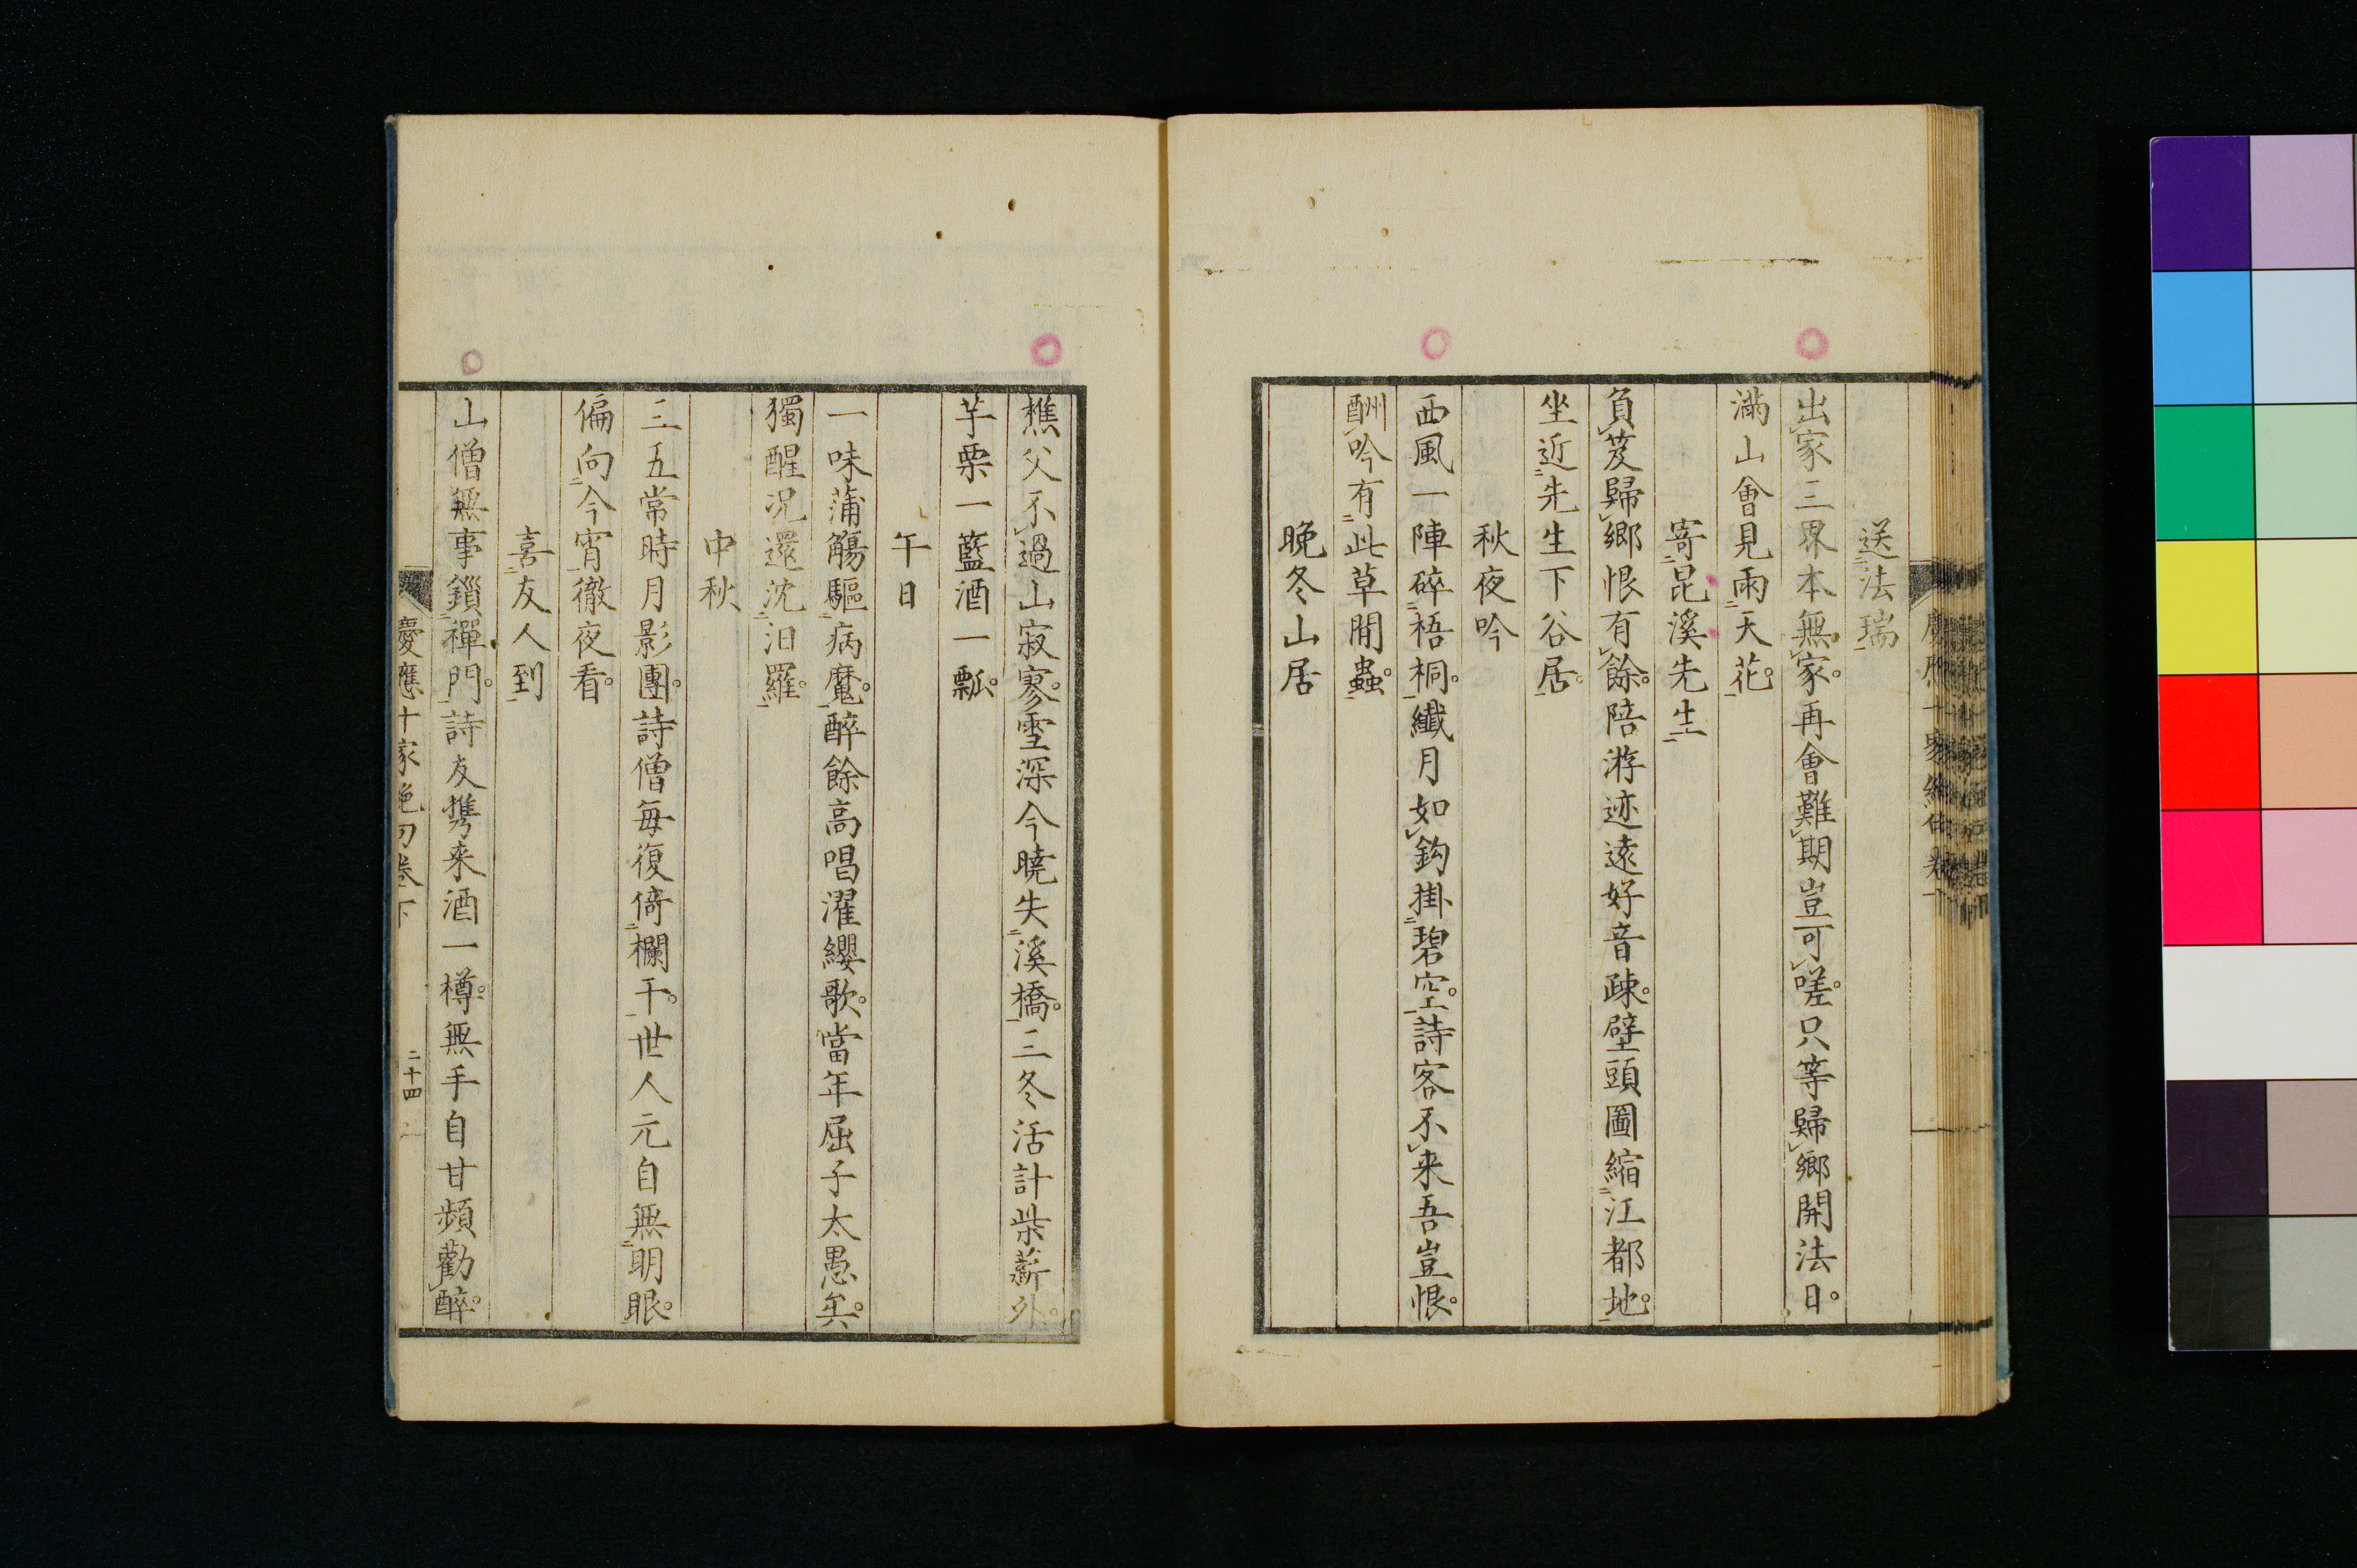 送法瑞
出家三界本無家。再會難期豈可嗟。只等歸鄉開法日。
滿山會見雨天花。
寄昆溪先生
負笈歸鄉恨有餘。陪游迹遠好音疎。壁頭圖縮江都地。
坐近先生下谷居。
秋夜吟
西風一陣碎梧桐。纖月如鈎掛碧空。詩客不来吾豈恨。
酬吟有此草間蟲。
晚冬山居
樵父不過山寂寥。雪深今曉失溪橋。三冬活計柴薪外。
芋栗一籃酒一瓢。
午日
一味蒲觴驅病魔。醉餘高唱濯纓歌。當年屈子太愚矣。
獨醒況還沈汨羅。
中秋
三五常時月影團。詩僧每復倚欄干。世人元自無明眼。
偏向今宵徹夜看。
喜友人到
山僧無事鎖禪門。詩友携来酒一樽。無手自甘頻勸醉。
慶應十家絶句卷下
二十四